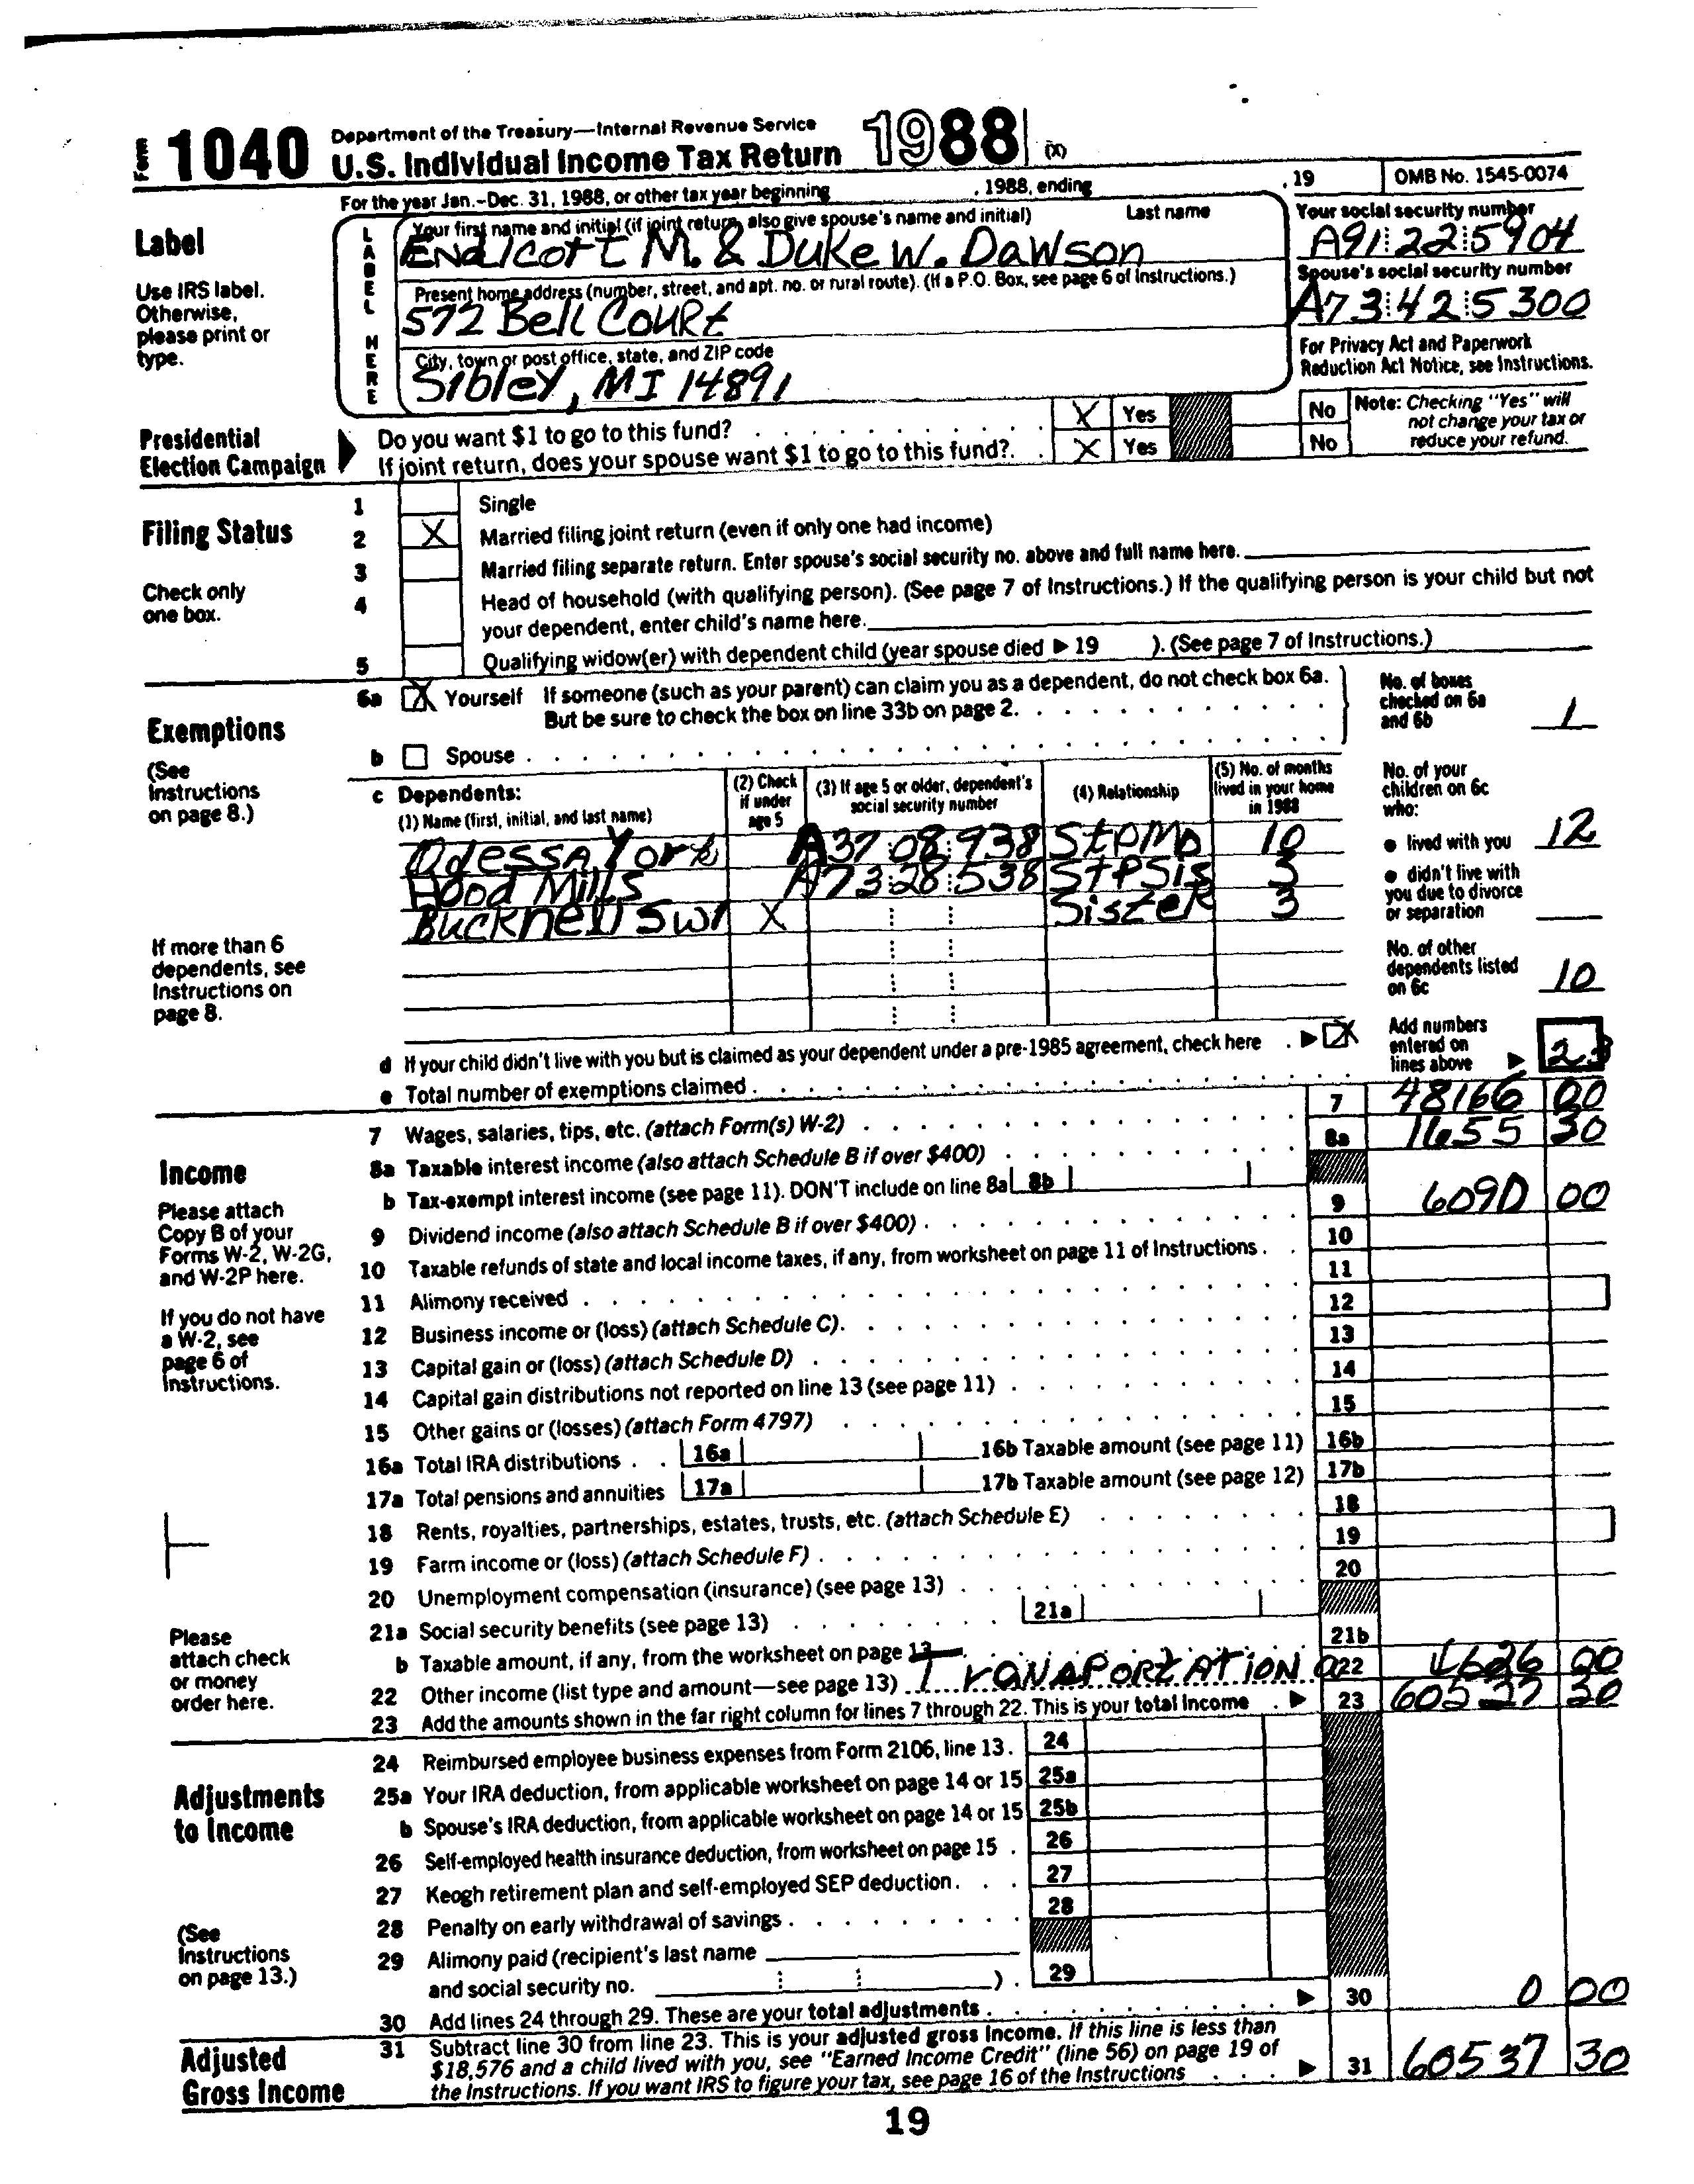 Form 1040 Department of the Treasury—Internal Revenue Service
U.S. Individual Income Tax Return 1988 (X)
For the year Jan.–Dec. 31, 1988, or other tax year beginning , 1988, ending , 19 OMB No. 1545-0074
Label
Use IRS label. Otherwise, please print or type.
LABEL HERE
Your first name and initial (if joint return, also give spouse's name and initial) Last name
Endicott M. & Duke W. Dawson
Your social security number
A91 22 5904
Present home address (number, street, and apt. no. or rural route). (If a P.O. Box, see page 6 of Instructions.)
572 Bell Court
Spouse's social security number
A73 42 5300
City, town or post office, state, and ZIP code
Sibley, MI 14891
For Privacy Act and Paperwork Reduction Act Notice, see Instructions.
Presidential Election Campaign
Do you want $1 to go to this fund? X Yes No
If joint return, does your spouse want $1 to go to this fund? X Yes No
Note: Checking "Yes" will not change your tax or reduce your refund.
Filing Status
Check only one box.
1 Single
2 X Married filing joint return (even if only one had income)
3 Married filing separate return. Enter spouse's social security no. above and full name here.
4 Head of household (with qualifying person). (See page 7 of Instructions.) If the qualifying person is your child but not
your dependent, enter child's name here.
5 Qualifying widow(er) with dependent child (year spouse died ▶ 19 ). (See page 7 of Instructions.)
Exemptions
(See Instructions on page 8.)
6a X Yourself If someone (such as your parent) can claim you as a dependent, do not check box 6a.
But be sure to check the box on line 33b on page 2.
b Spouse
No. of boxes checked on 6a and 6b 1
c Dependents:
(1) Name (first, initial, and last name) (2) Check if under age 5 (3) If age 5 or older, dependent's social security number (4) Relationship (5) No. of months lived in your home in 1988
Odessa York A37 08 938 StPMo 10
Hood Mills A73 28 538 StPSis 3
Bucknell Swr X Sister 3
No. of your children on 6c who:
● lived with you 12
● didn't live with you due to divorce or separation
No. of other dependents listed on 6c 10
If more than 6 dependents, see Instructions on page 8.
d If your child didn't live with you but is claimed as your dependent under a pre-1985 agreement, check here ▶ X
e Total number of exemptions claimed
Add numbers entered on lines above ▶ 23
Income
Please attach Copy B of your Forms W-2, W-2G, and W-2P here.
If you do not have a W-2, see page 6 of Instructions.
Please attach check or money order here.
7 Wages, salaries, tips, etc. (attach Form(s) W-2) 7 48166 00
8a Taxable interest income (also attach Schedule B if over $400) 8a 1655 30
b Tax-exempt interest income (see page 11). DON'T include on line 8a 8b
9 Dividend income (also attach Schedule B if over $400) 9 6090 00
10 Taxable refunds of state and local income taxes, if any, from worksheet on page 11 of Instructions 10
11 Alimony received 11
12 Business income or (loss) (attach Schedule C) 12
13 Capital gain or (loss) (attach Schedule D) 13
14 Capital gain distributions not reported on line 13 (see page 11) 14
15 Other gains or (losses) (attach Form 4797) 15
16a Total IRA distributions 16a 16b Taxable amount (see page 11) 16b
17a Total pensions and annuities 17a 17b Taxable amount (see page 12) 17b
18 Rents, royalties, partnerships, estates, trusts, etc. (attach Schedule E) 18
19 Farm income or (loss) (attach Schedule F) 19
20 Unemployment compensation (insurance) (see page 13) 20
21a Social security benefits (see page 13) 21a
b Taxable amount, if any, from the worksheet on page 13 21b
22 Other income (list type and amount—see page 13) 22 4626 00
23 Add the amounts shown in the far right column for lines 7 through 22. This is your total income ▶ 23 60537 30
Adjustments to Income
(See Instructions on page 13.)
24 Reimbursed employee business expenses from Form 2106, line 13. 24
25a Your IRA deduction, from applicable worksheet on page 14 or 15 25a
b Spouse's IRA deduction, from applicable worksheet on page 14 or 15 25b
26 Self-employed health insurance deduction, from worksheet on page 15 26
27 Keogh retirement plan and self-employed SEP deduction 27
28 Penalty on early withdrawal of savings 28
29 Alimony paid (recipient's last name
and social security no. ) 29
30 Add lines 24 through 29. These are your total adjustments ▶ 30 0 00
Adjusted Gross Income
31 Subtract line 30 from line 23. This is your adjusted gross income. If this line is less than
$18,576 and a child lived with you, see "Earned Income Credit" (line 56) on page 19 of
the Instructions. If you want IRS to figure your tax, see page 16 of the Instructions ▶ 31 60537 30
19